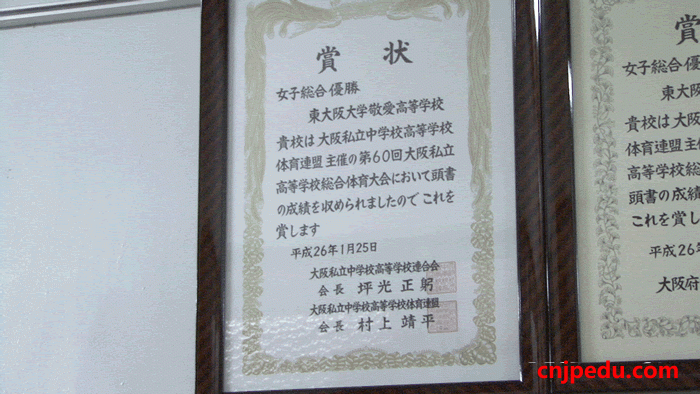 賞 状
女子総合優勝
東大阪大学敬愛高等学校
貴校は大阪私立中学校高等学校
体育連盟主催の第60回大阪私立
高等学校総合体育大会において頭書
の成績を収められましたのでこれを
賞します
平成26年1月25日
大阪私立中学校高等学校連合会
会長 坪光正躬
大阪私立中学校高等学校体育連盟
会長 村上靖平
賞
女子総合優
東大阪
貴校は大阪
体育連盟主
高等学校総
頭書の成績
これを賞し
平成26年
大阪府
cnjpedu.com